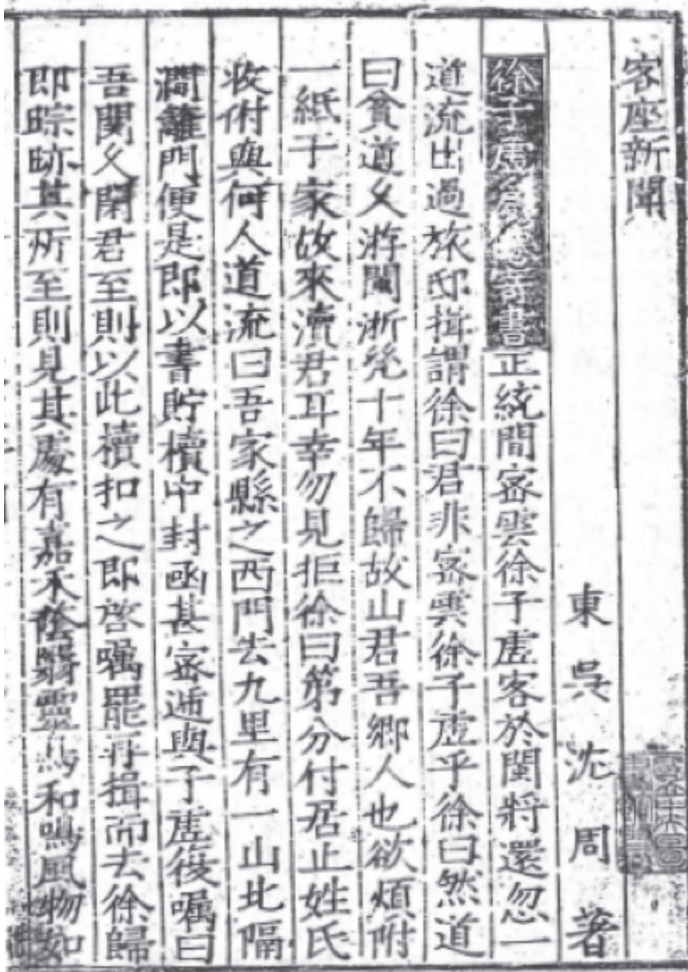 客座新聞
東吳沈周著
徐子虛寄書正統間密雲徐子虛客於閩將還忽一
道流出過旅邸揖謂徐曰君非密雲徐子虛乎徐曰然道
曰貧道乆游閩浙凭十年不歸故山君吾鄉人也欲煩附
一紙于家故來瀆君耳幸勿見拒徐曰第分付居止姓氏
收付與何人道流曰吾家縣之西門去九里有一山北隔
澗籬門便是即以書貯櫝中封函甚密遞與子虛復嘱曰
吾関乆閉君至則以此櫝扣之即啓嘱罷再揖而去徐歸
即踪跡其所至則見其處有嘉木蔭翳靈鳥和鳴風物如